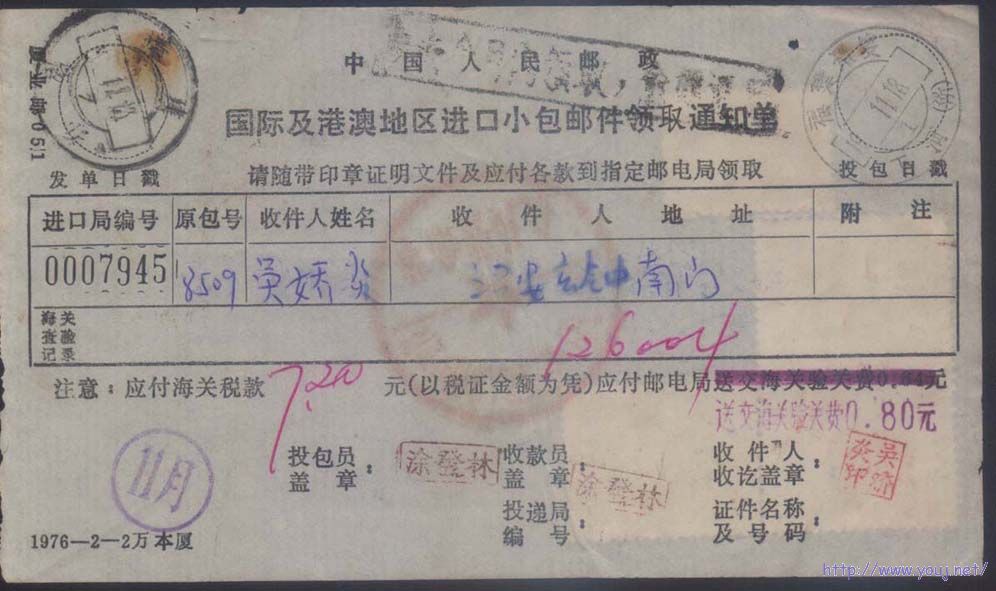 中国人民邮政
国际及港澳地区进口小包邮件领取通知单
发单日戳 请随带印章证明文件及应付各款到指定邮电局领取 投包日戳
进口局编号 原包号 收件人姓名 收件人地址 附注
0007945 8509 吴娇炎 南门
海关查验记录
126004
注意：应付海关税款 7.20 元(以税证金额为凭)应付邮电局送交海关验关费0.64元
送交海关验关费0.80元
11月
投包员盖章： 涂登林 收款员盖章： 涂登林 收件人收讫盖章： 吴娇炎印
投递局编号： 证件名称及号码：
1976—2—2万 本厦
http://www.youj.net/